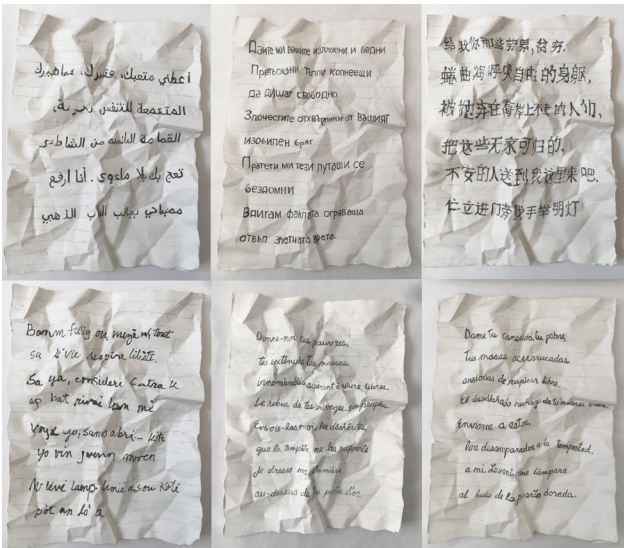 أعطني متعبيك، فقيرك، جماهيرك
المتجمعة للتنفس بحرية،
القمامة البائسة من الشاطئ
تعج بك بلا مأوى. أنا أرفع
مصباحي بجانب الباب الذهبي
Дайте ми вашите изтощени и бедни
Претъпкани тълпи копнеещи
да дишат свободно
Злочестите отхвърлени от вашият
изобилен бряг
Пратети ми тези луташи се
бездомни
Вдигам факлата огряваща
отвъд златната врата.
给我你那些劳累,贫穷,
蜷曲渴呼吸自由的身躯,
被你弃在海岸上不要的人们,
把这些无家可归的,
不安的人送到我这里来吧.
伫立进门旁我手举明灯
Bamm fatig ou, mizè w, tout
sa k vle respire libète.
Sa yo, considere fatra ki
ap bat rivaj lan mè
Voye yo, sans abri – kite
yo vin jwenn mwen
M levé lamp limiè a sou kòté
pòt an lò a
Donne-moi tes pauvres,
tes exténués tes masses
innombrables aspirant à vivre libres,
Le rebus de tes rivages surpeuplés.
Envoie-les moi, les déshérités,
que la tempête me les rapporte
Je dresse ma lumière
au-dessus de la porte d'or
Dame tu cansada, tu pobre,
Tus masas acurrucadas
ansiosas de respirar libre,
El desdichado rechazo de tu inmensa orilla.
Envíame a estos,
los desamparados a la tempestad,
a mi. Levanto mi lámpara
al lado de la puerta dorada.